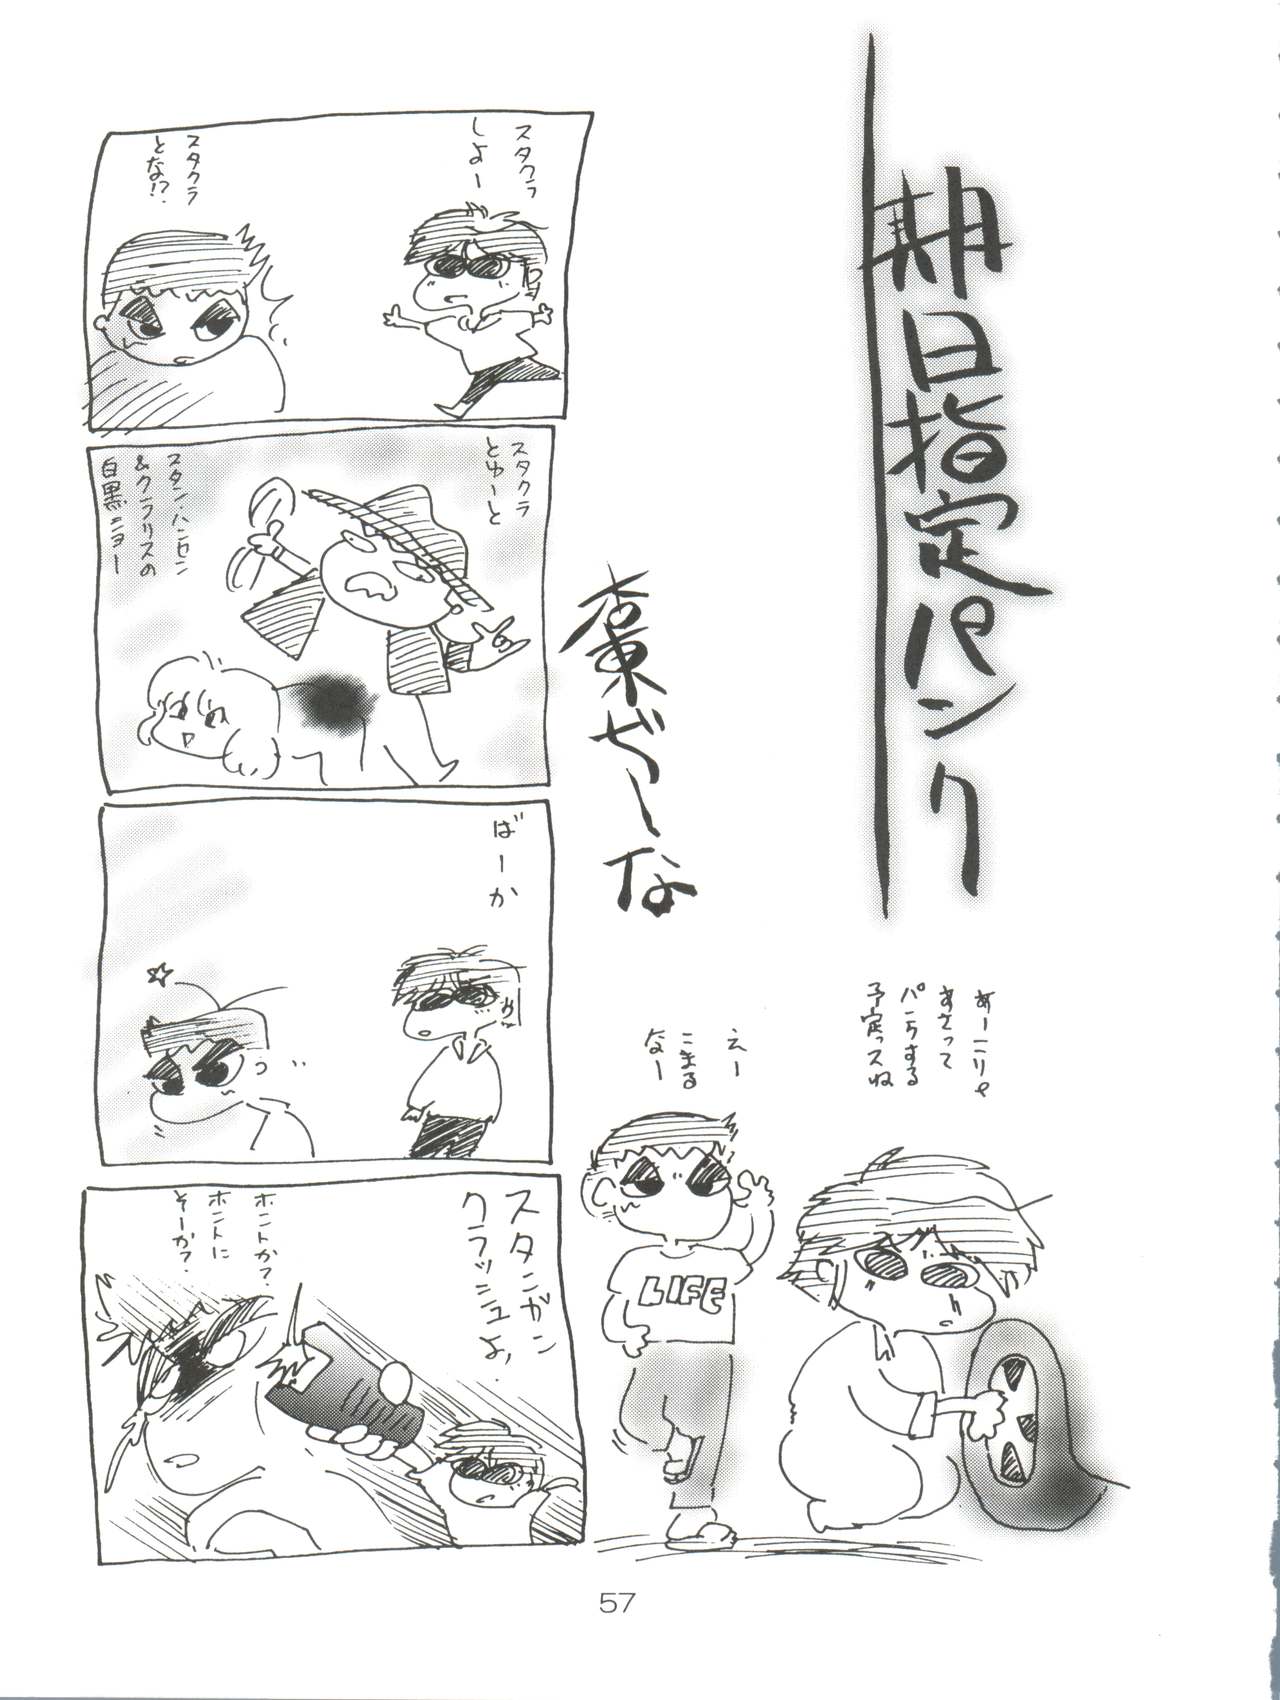 期日指定パンク
杏東ぜーな
あーこりゃ
あさって
パンクする
予定っスね
えー
こまる
なー
LIFE
スタクラ
しよー
スタクラ
とな!?
スタクラ
とゆーと
スタン・ハンセン
&クンフリスの
白黒ショー
ばーか
スタンガン
クラッシュよ、
ホントか?
ホントに
そーか?
57